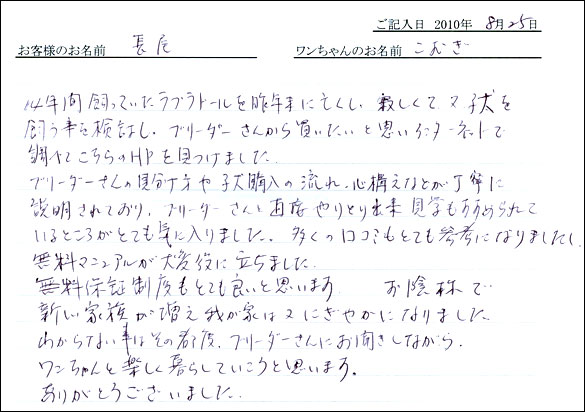 ご記入日 2010年 8月25日
お客様のお名前 長尾 ワンちゃんのお名前 こむぎ
14年間飼っていたラブラドールを昨年末に亡くし、寂しくて又子犬を
飼う事を検討し、ブリーダーさんから買いたいと思いインターネットで
調べてこちらのHPを見つけました。
ブリーダーさんの見分け方や子犬購入の流れ、心構えなどが丁寧に
説明されており、ブリーダーさんと直接やりとり出来見学もすすめられて
いるところがとても気に入りました。多くの口コミもとても参考になりましたし、
無料マニュアルが大変役に立ちました。
無料保証制度もとても良いと思います。 お陰様で
新しい家族が増え我が家は又にぎやかになりました。
わからない事はその都度、ブリーダーさんにお聞きしながら、
ワンちゃんと楽しく暮らしていこうと思います。
ありがとうございました。